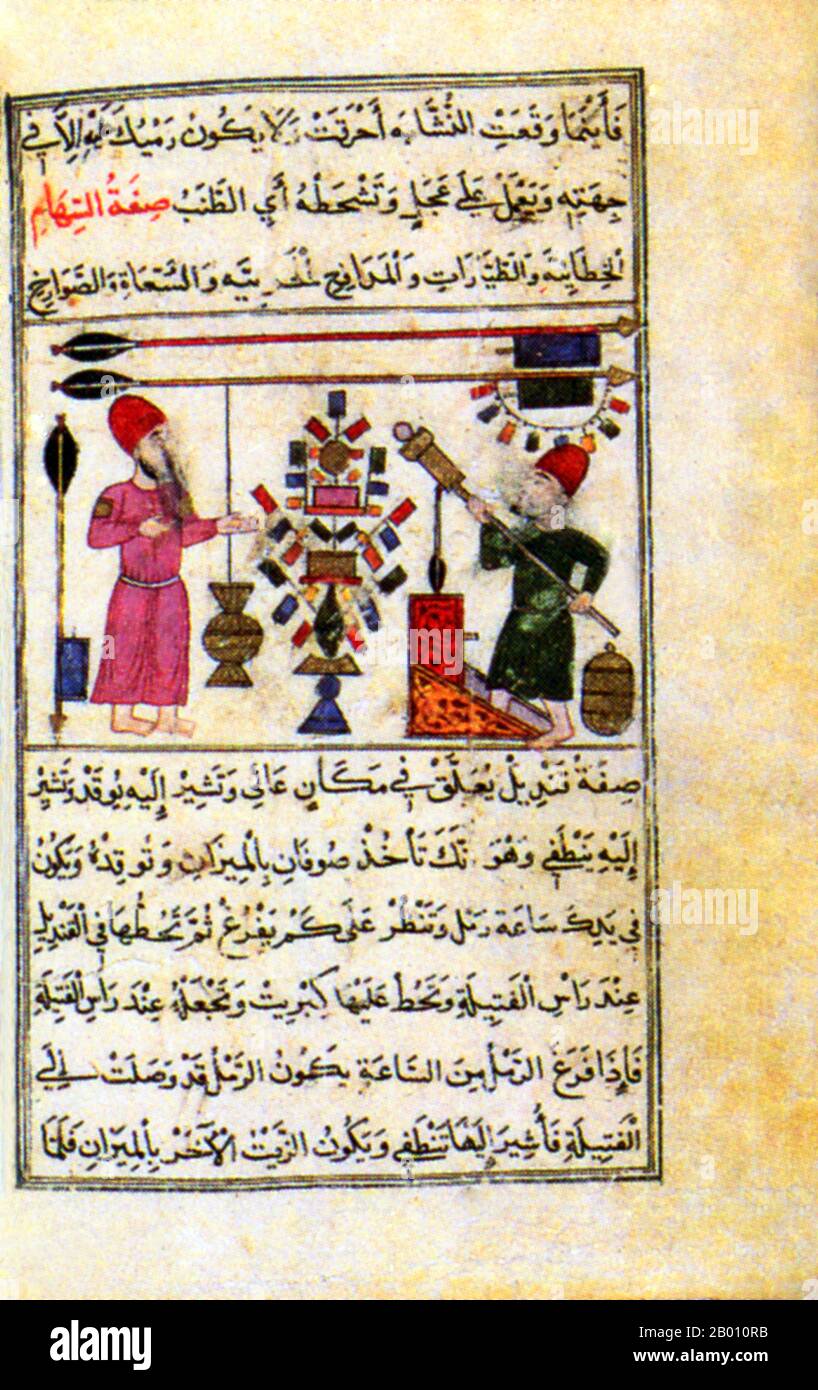 فَأَيْنَمَا وَقَعَتِ النُّشَّابَه أَحْرَقَتْ وَلَا يَكُونُ رَمْيُكَ إِلَّا فِي
جِهَتِهِ وَيَعْمَلْ عَلَى عَجَلٍ وَتَشْحَطْهُ أَيِ الطَّنَبُ صِفَةُ السِّهَامِ
الْخِطَائِيَّه وَالطَّيَّارَاتِ وَالْمَدَافِعِ وَالسُّعَاةِ وَالصَّوَارِخِ
صِفَةُ قَنْدِيلْ يُعَلَّقْ فِي مَكَانٍ عَالِي وَتَشِيرْ إِلَيْهِ يُوقَدْ وَتَشِيرْ
إِلَيْهِ يَنْطَفِي وَهُوَ تَأْخُذْ صُوفَانٍ بِالْمِيزَانِ وَتُوقِدْهُ وَتَكُونُ
فِي يَدِكَ سَاعَة رَمْل وَتَنْظُرْ عَلَى كَمْ يَفْرُغْ ثُمَّ تَحُطُّهَا فِي الْقَنْدِيلِ
عِنْدَ رَاسِ الْفَتِيلَةِ وَتَحُطْ عَلَيْهَا كِبْرِيتْ وَتَجْعَلُهُ عِنْدَ رَاسِ الْفَتِيلَةِ
فَإِذَا فَرَغَ الرَّمْلُ مِنَ السَّاعَةِ يَكُونُ الرَّمْلُ قَدْ وَصَلَتْ إِلَى
الْفَتِيلَةِ فَأُشِيرَ إِلَيْهَا تَنْطَفِي وَيَكُونُ الزَّيْتُ الْآخَرْ بِالْمِيزَانِ فَلَمَّا
alamy
alamy
alamy
alamy
Image ID: 2B010RB
www.alamy.com